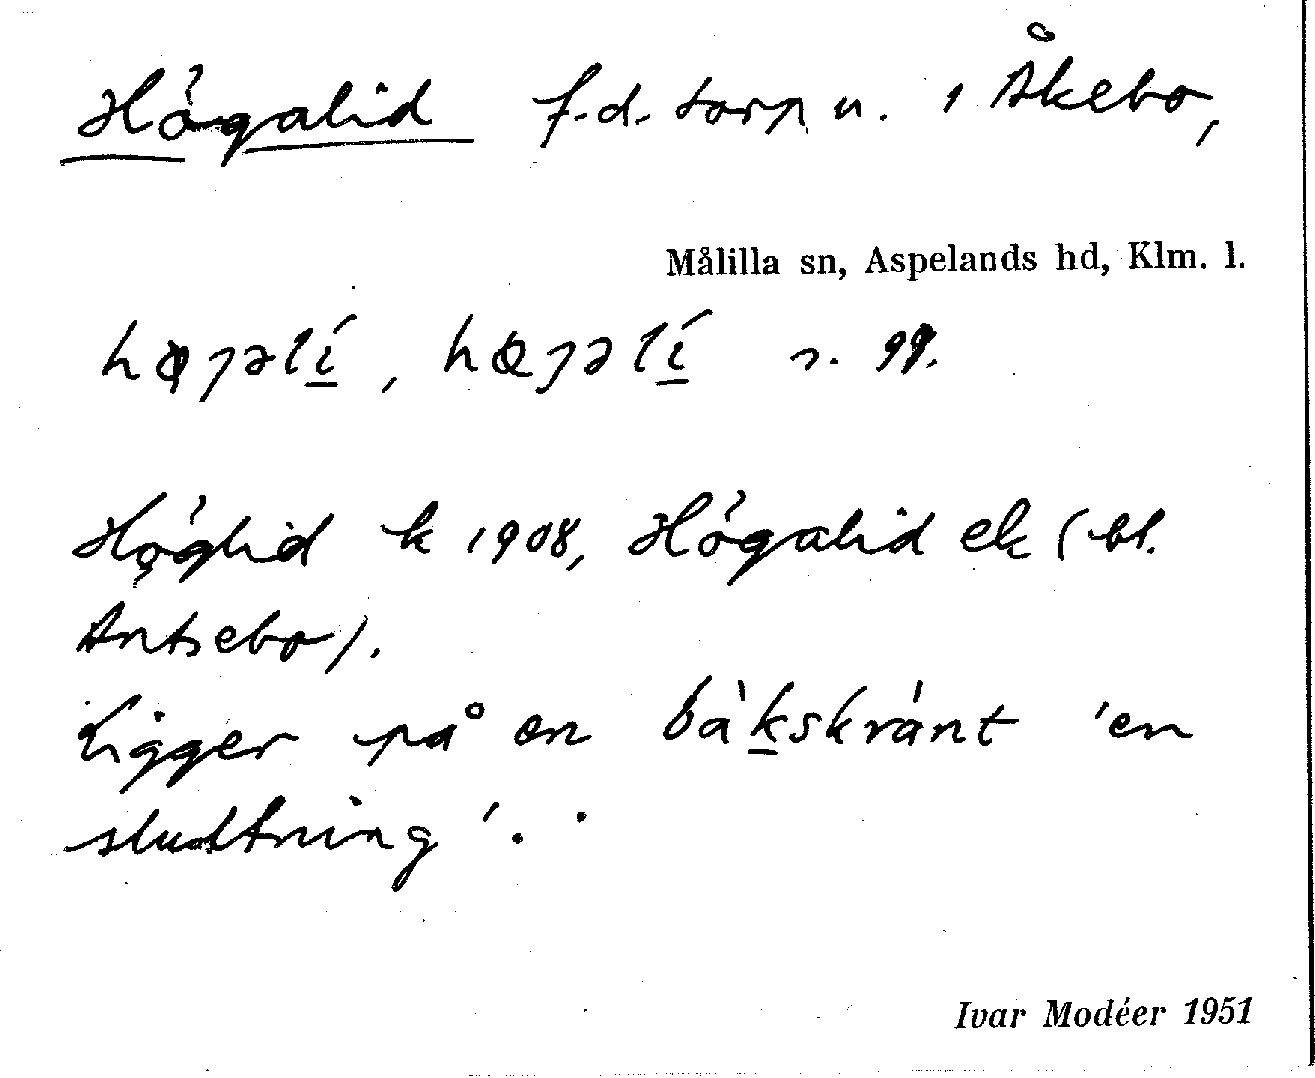 Högalid f.d. torp u. i Åkebo,
Målilla sn, Aspelands hd, Klm. l.
Höglid k 1908, Högalid ek (bl.
Antsebo).
Ligger på en bàkskránt 'en
sluttning'.
Ivar Modéer 1951